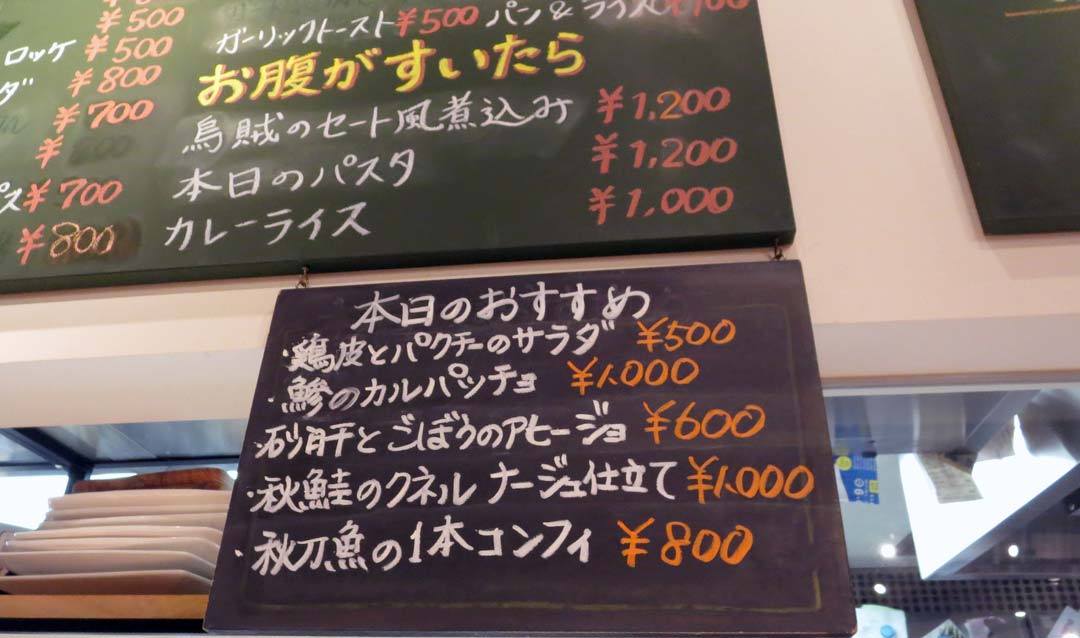 ¥500
ロッケ ¥500
ダ ¥800
¥700
¥
ス ¥700
¥800
ガーリックトースト ¥500 パン&ライス
お腹がすいたら
烏賊のセート風煮込み ¥1,200
本日のパスタ ¥1,200
カレーライス ¥1,000
本日のおすすめ
・鶏皮とパクチーのサラダ ¥500
・鯵のカルパッチョ ¥1.000
・砂肝とごぼうのアヒージョ ¥600
・秋鮭のクネル ナージュ仕立て ¥1.000
・秋刀魚の1本コンフィ ¥800